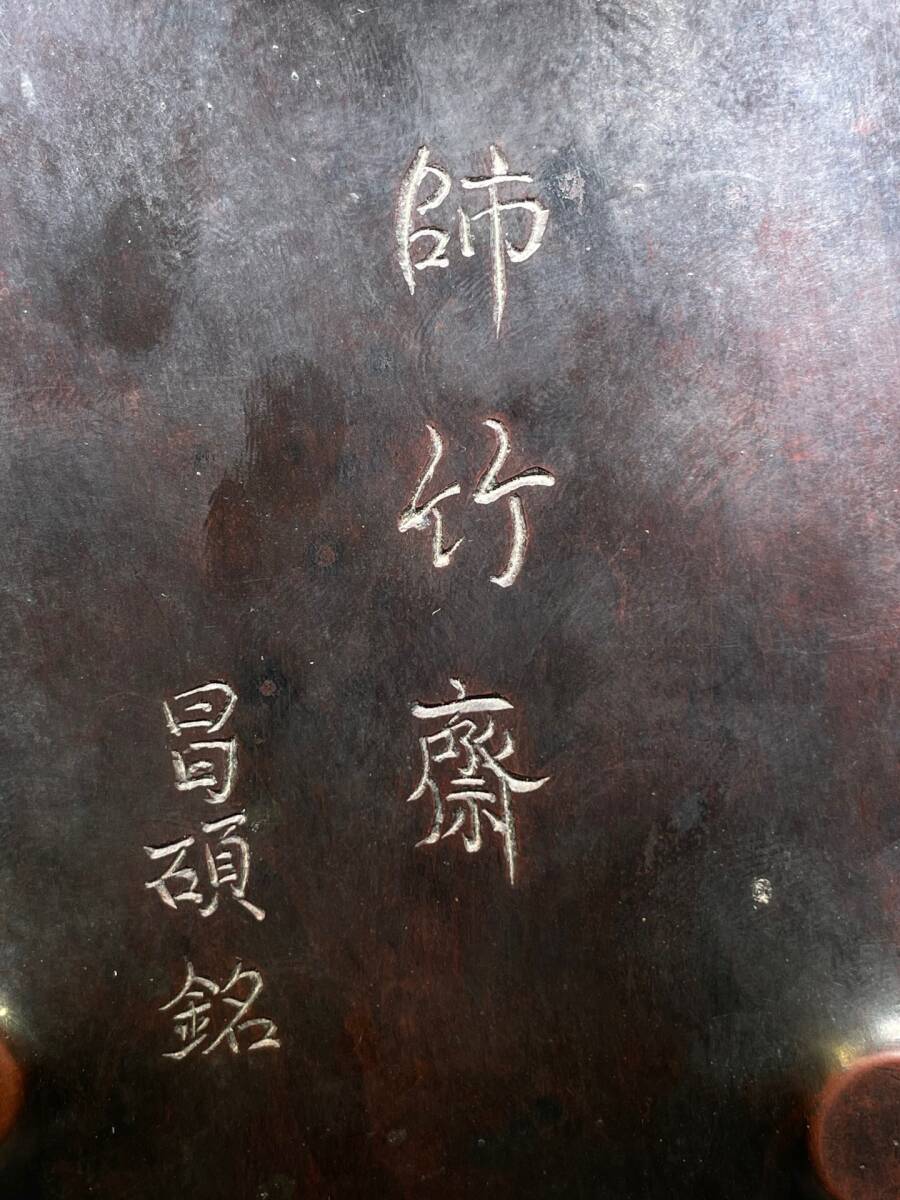 師竹齋
昌碩銘